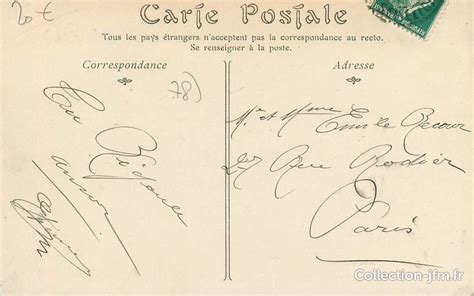 20 €
Carte Postale
Tous les pays étrangers n'acceptent pas la correspondance au recto.
Se renseigner à la poste.
Correspondance
Adresse
(78)
En Réponse
Mr et Mme Emile Recour
27 Rue Rodier
Paris
Collection-jfm.fr